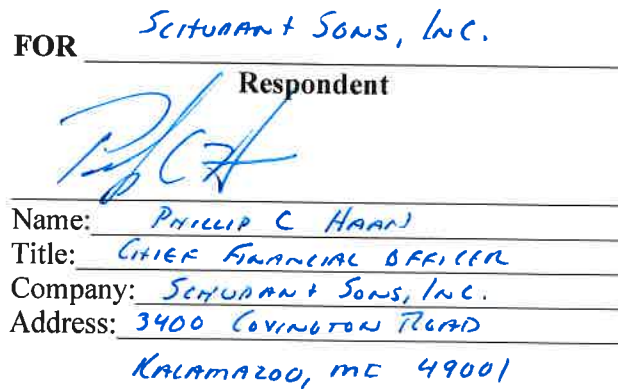 FOR SCHURAN + SONS, INC.
Respondent
Name: PHILLIP C HAAN
Title: CHIEF FINANCIAL OFFICER
Company: SCHURAN + SONS, INC.
Address: 3400 COVINGTON ROAD
KALAMAZOO, MI 49001